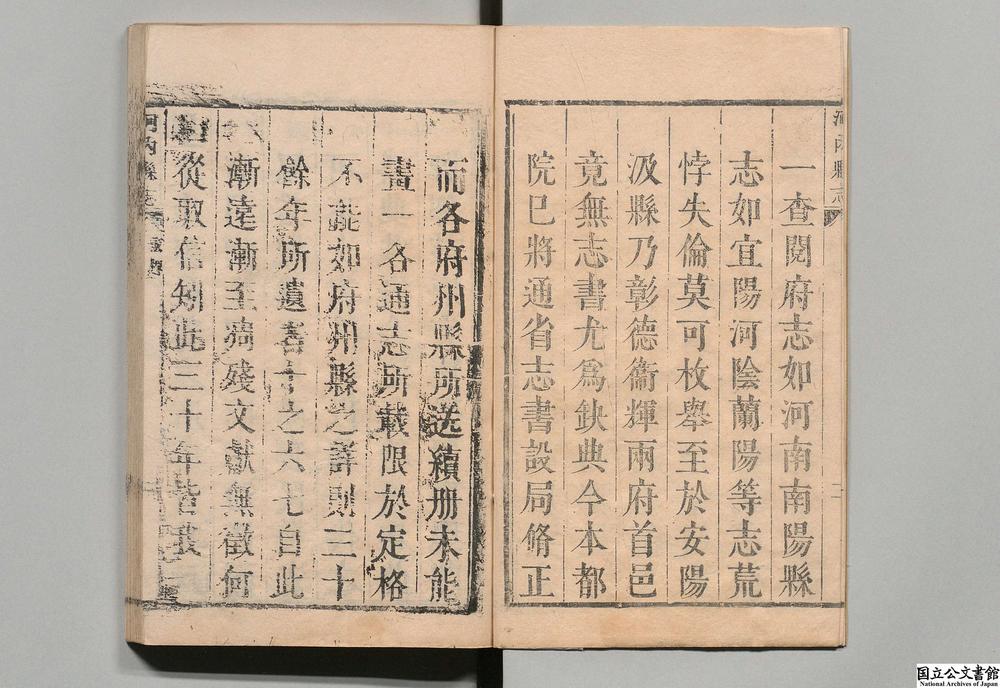 一查閱府志如河南南陽縣
志如宜陽河陰蘭陽等志荒
悖失倫莫可枚舉至於安陽
汲縣乃彰德衞輝兩府首邑
竟無志書尤爲缺典今本都
院已將通省志書設局脩正
而各府州縣所送續册未能
畫一各通志所載限於定格
不能如府州縣之詳則三十
餘年所遺者十之六七自此
漸遠漸至殘文獻無徵何
從取信矧此三十年
河内縣志
國立公文書館
National Archives of Japan